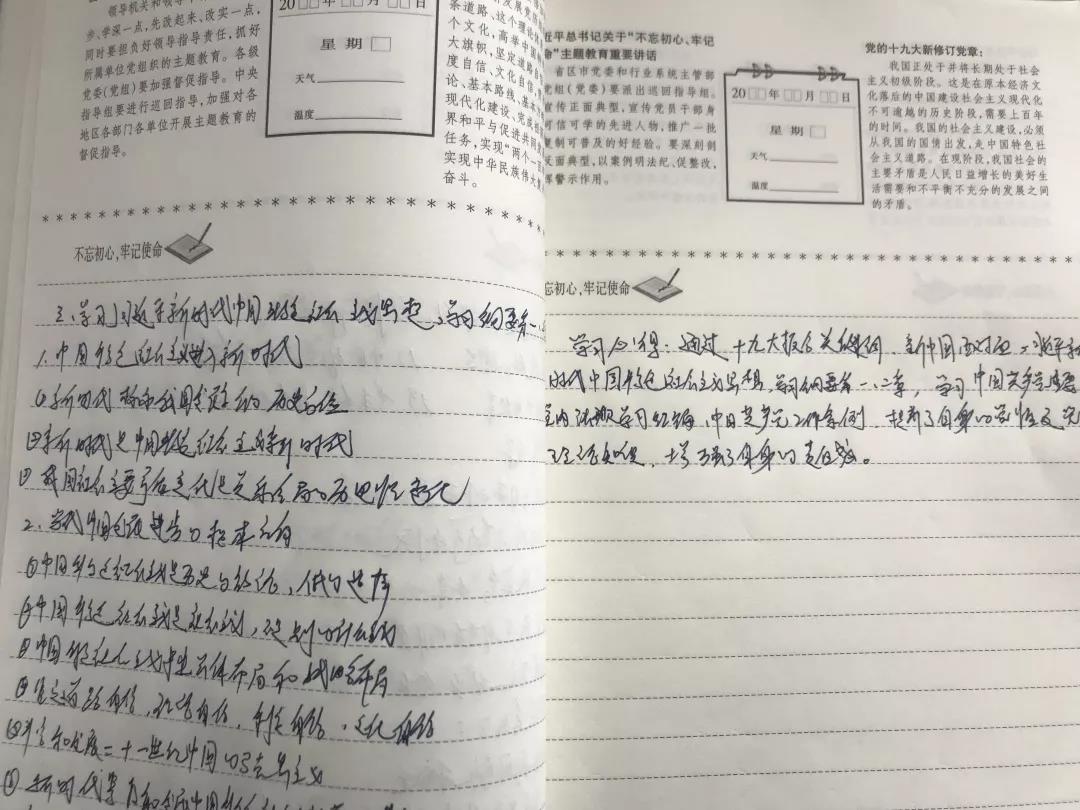 领导机关和领导干
步、学深一点,先改起来、改实一点,
同时要担负好领导指导责任,抓好
所属单位党组织的主题教育。各级
党委(党组)要加强督促指导。中央
指导组要进行巡回指导,加强对各
地区各部门各单位开展主题教育的
督促指导。
20□□年□□月□□日
星 期 □
天气
温度
发展党
条道路、这个理论
个文化,高举中国
大旗帜,坚定道路自
度自信、文化自信,
论、基本路线、基本
现代化建设、完成祖
界和平与促进共同
任务,实现“两个一百
实现中华民族伟大
奋斗。
不忘初心,牢记使命
三、学习习近平新时代中国特色社会主义思想,学习纲要第一、
1.中国特色社会主义进入新时代
新时代标示我国发展的历史方位
新时代是中国特色社会主义新时代
我国社会主要矛盾变化是关系全局的历史性变化
2.当代中国发展进步的根本方向
中国特色社会主义是历史的结论,人民的选择
中国特色社会主义是社会主义,不是别的什么主义
中国特色社会主义总体布局和战略布局
坚定道路自信,理论自信,制度自信,文化自信
和发展二十一世纪中国的马克思主义
新时代
近平总书记关于“不忘初心、牢记
命”主题教育重要讲话
省区市党委和行业系统主管部
党组(党委)要派出巡回指导组。
宣传正面典型,宣传党员干部身
可信可学的先进人物,推广一批
复制可普及的好经验。要深刻剖
反面典型,以案例明法纪、促整改,
挥警示作用。
20□□年□□月□□日
星 期 □
天气
温度
党的十九大新修订党章:
我国正处于并将长期处于社会
主义初级阶段。这是在原本经济文
化落后的中国建设社会主义现代化
不可逾越的历史阶段,需要上百年
的时间。我国的社会主义建设,必须
从我国的国情出发,走中国特色社
会主义道路。在现阶段,我国社会的
主要矛盾是人民日益增长的美好生
活需要和不平衡不充分的发展之间
的矛盾。
忘初心,牢记使命
学习心得:通过十九大报告关键词,新中国面对面,习近平新
时代中国特色社会主义思想,学习纲要第一、二章,学习中国共产党重要
党内法规学习汇编,中国共产党工作条例,提高了自身的党性及党
理论知识,增强了自身的责任感。